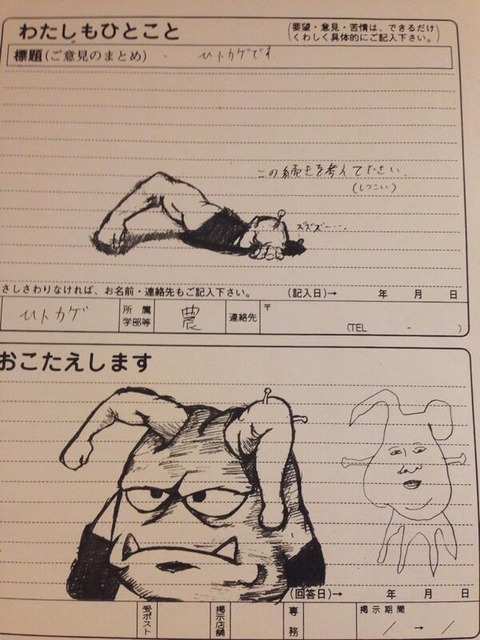 わたしもひとこと
(要望・意見・苦情は、できるだけ
くわしく具体的にご記入下さい。)
標題(ご意見のまとめ) ・ ヒトカゲです。
この続きを考えて下さい。
(しつこい)
ズズズ‥‥
さしさわりなければ、お名前・連絡先もご記入下さい。 (記入日)→ 年 月 日
ヒトカゲ 所属 学部等 農 連絡先 〒
(TEL - )
おこたえします
(回答日)→ 年 月 日
受ポスト 掲示店舗 専務 掲示期間
/ → /